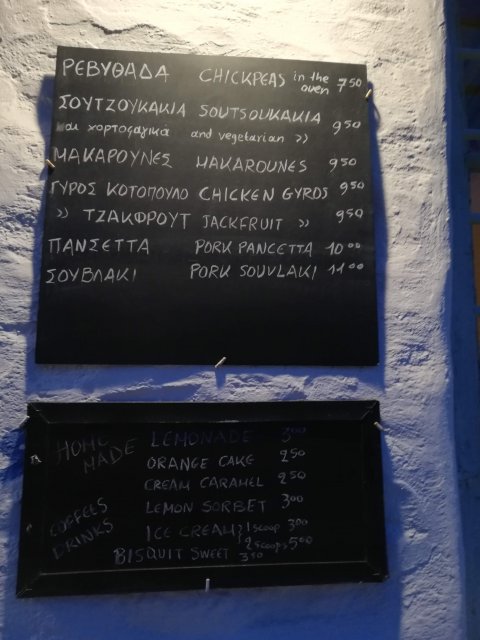 ΡΕΒΥΘΑΔΑ CHICKPEAS in the oven 7⁵⁰
ΣΟΥΤΖΟΥΚΑΚΙΑ SOUTSOUKAKIA
και χορτοφαγικά and vegetarian >> 9⁵⁰
ΜΑΚΑΡΟΥΝΕΣ MAKAROUNES 9⁵⁰
ΓΥΡΟΣ ΚΟΤΟΠΟΥΛΟ CHICKEN GYROS 9⁵⁰
>> ΤΖΑΚΦΡΟΥΤ JACKFRUIT >> 9⁵⁰
ΠΑΝΣΕΤΤΑ PORK PANCETTA 10⁰⁰
ΣΟΥΒΛΑΚΙ PORK SOUVLAKI 11⁰⁰
HOME MADE LEMONADE 3⁰⁰
ORANGE CAKE 2⁵⁰
CREAM CARAMEL 2⁵⁰
LEMON SORBET 3⁰⁰
COFFEES DRINKS
ICE CREAM 1 scoop 3⁰⁰
2 scoops 5⁰⁰
BISQUIT SWEET 3⁵⁰